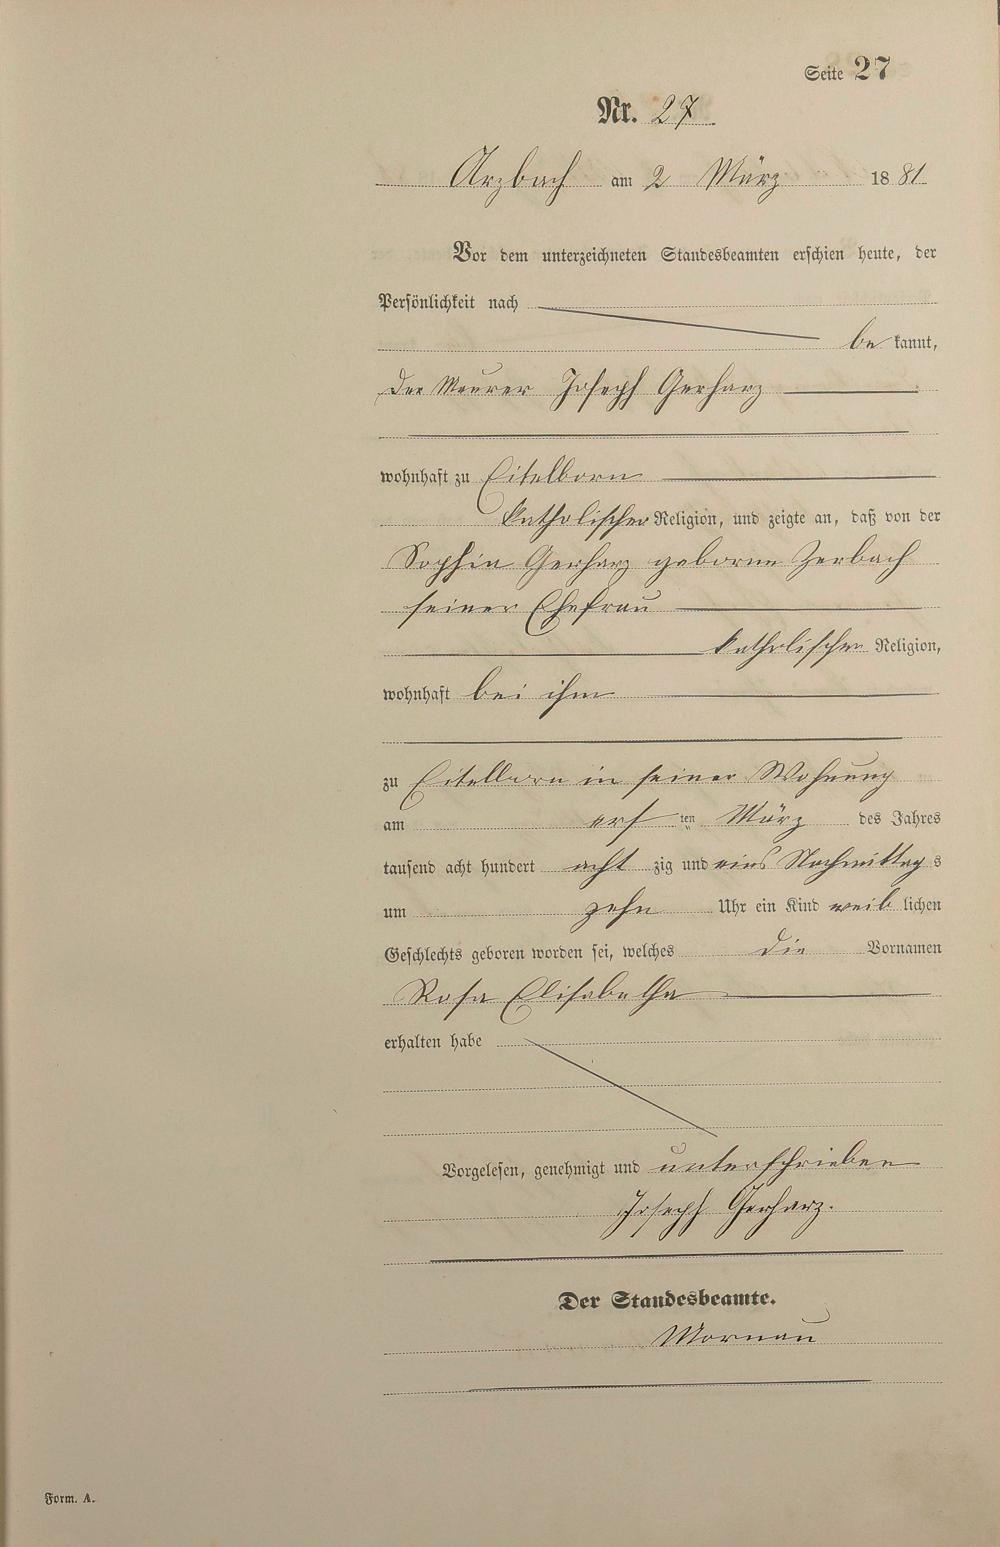 Seite 27
Nr. 27
Arzbach am 2 März 1881
Vor dem unterzeichneten Standesbeamten erschien heute, der
Persönlichkeit nach
be kannt,
der Maurer Joseph Gerharz
wohnhaft zu Eitelborn
katholischer Religion, und zeigte an, daß von der
Sophia Gerharz geborne Zerbach
seiner Ehefrau
katholischer Religion,
wohnhaft bei ihm
zu Eitelborn in seiner Wohnung
am ersten März des Jahres
tausend acht hundert acht zig und eins Nachmittags
um zehn Uhr ein Kind weiblichen
Geschlechts geboren worden sei, welches die Vornamen
Rosa Elisabetha
erhalten habe
Vorgelesen, genehmigt und unterschrieben
Joseph Gerharz.
Der Standesbeamte.
Form. A.